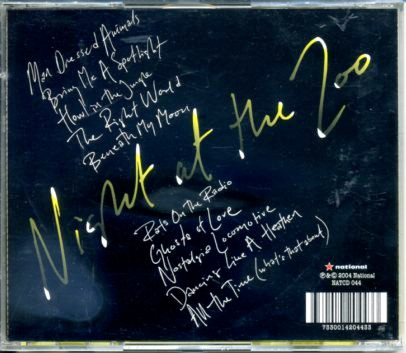 Men Dressed Animals
Bring Me A Spotlight
Howl in the Jungle
The Right World
Beneath My Moon
Night at the Zoo
Rats On The Radio
Ghosts of Love
Nostalgic Locomotive
Dancing Like A Heathen
All The Time (what's that about)
national
℗ & © 2004 National
NATCD 044
7330014204433